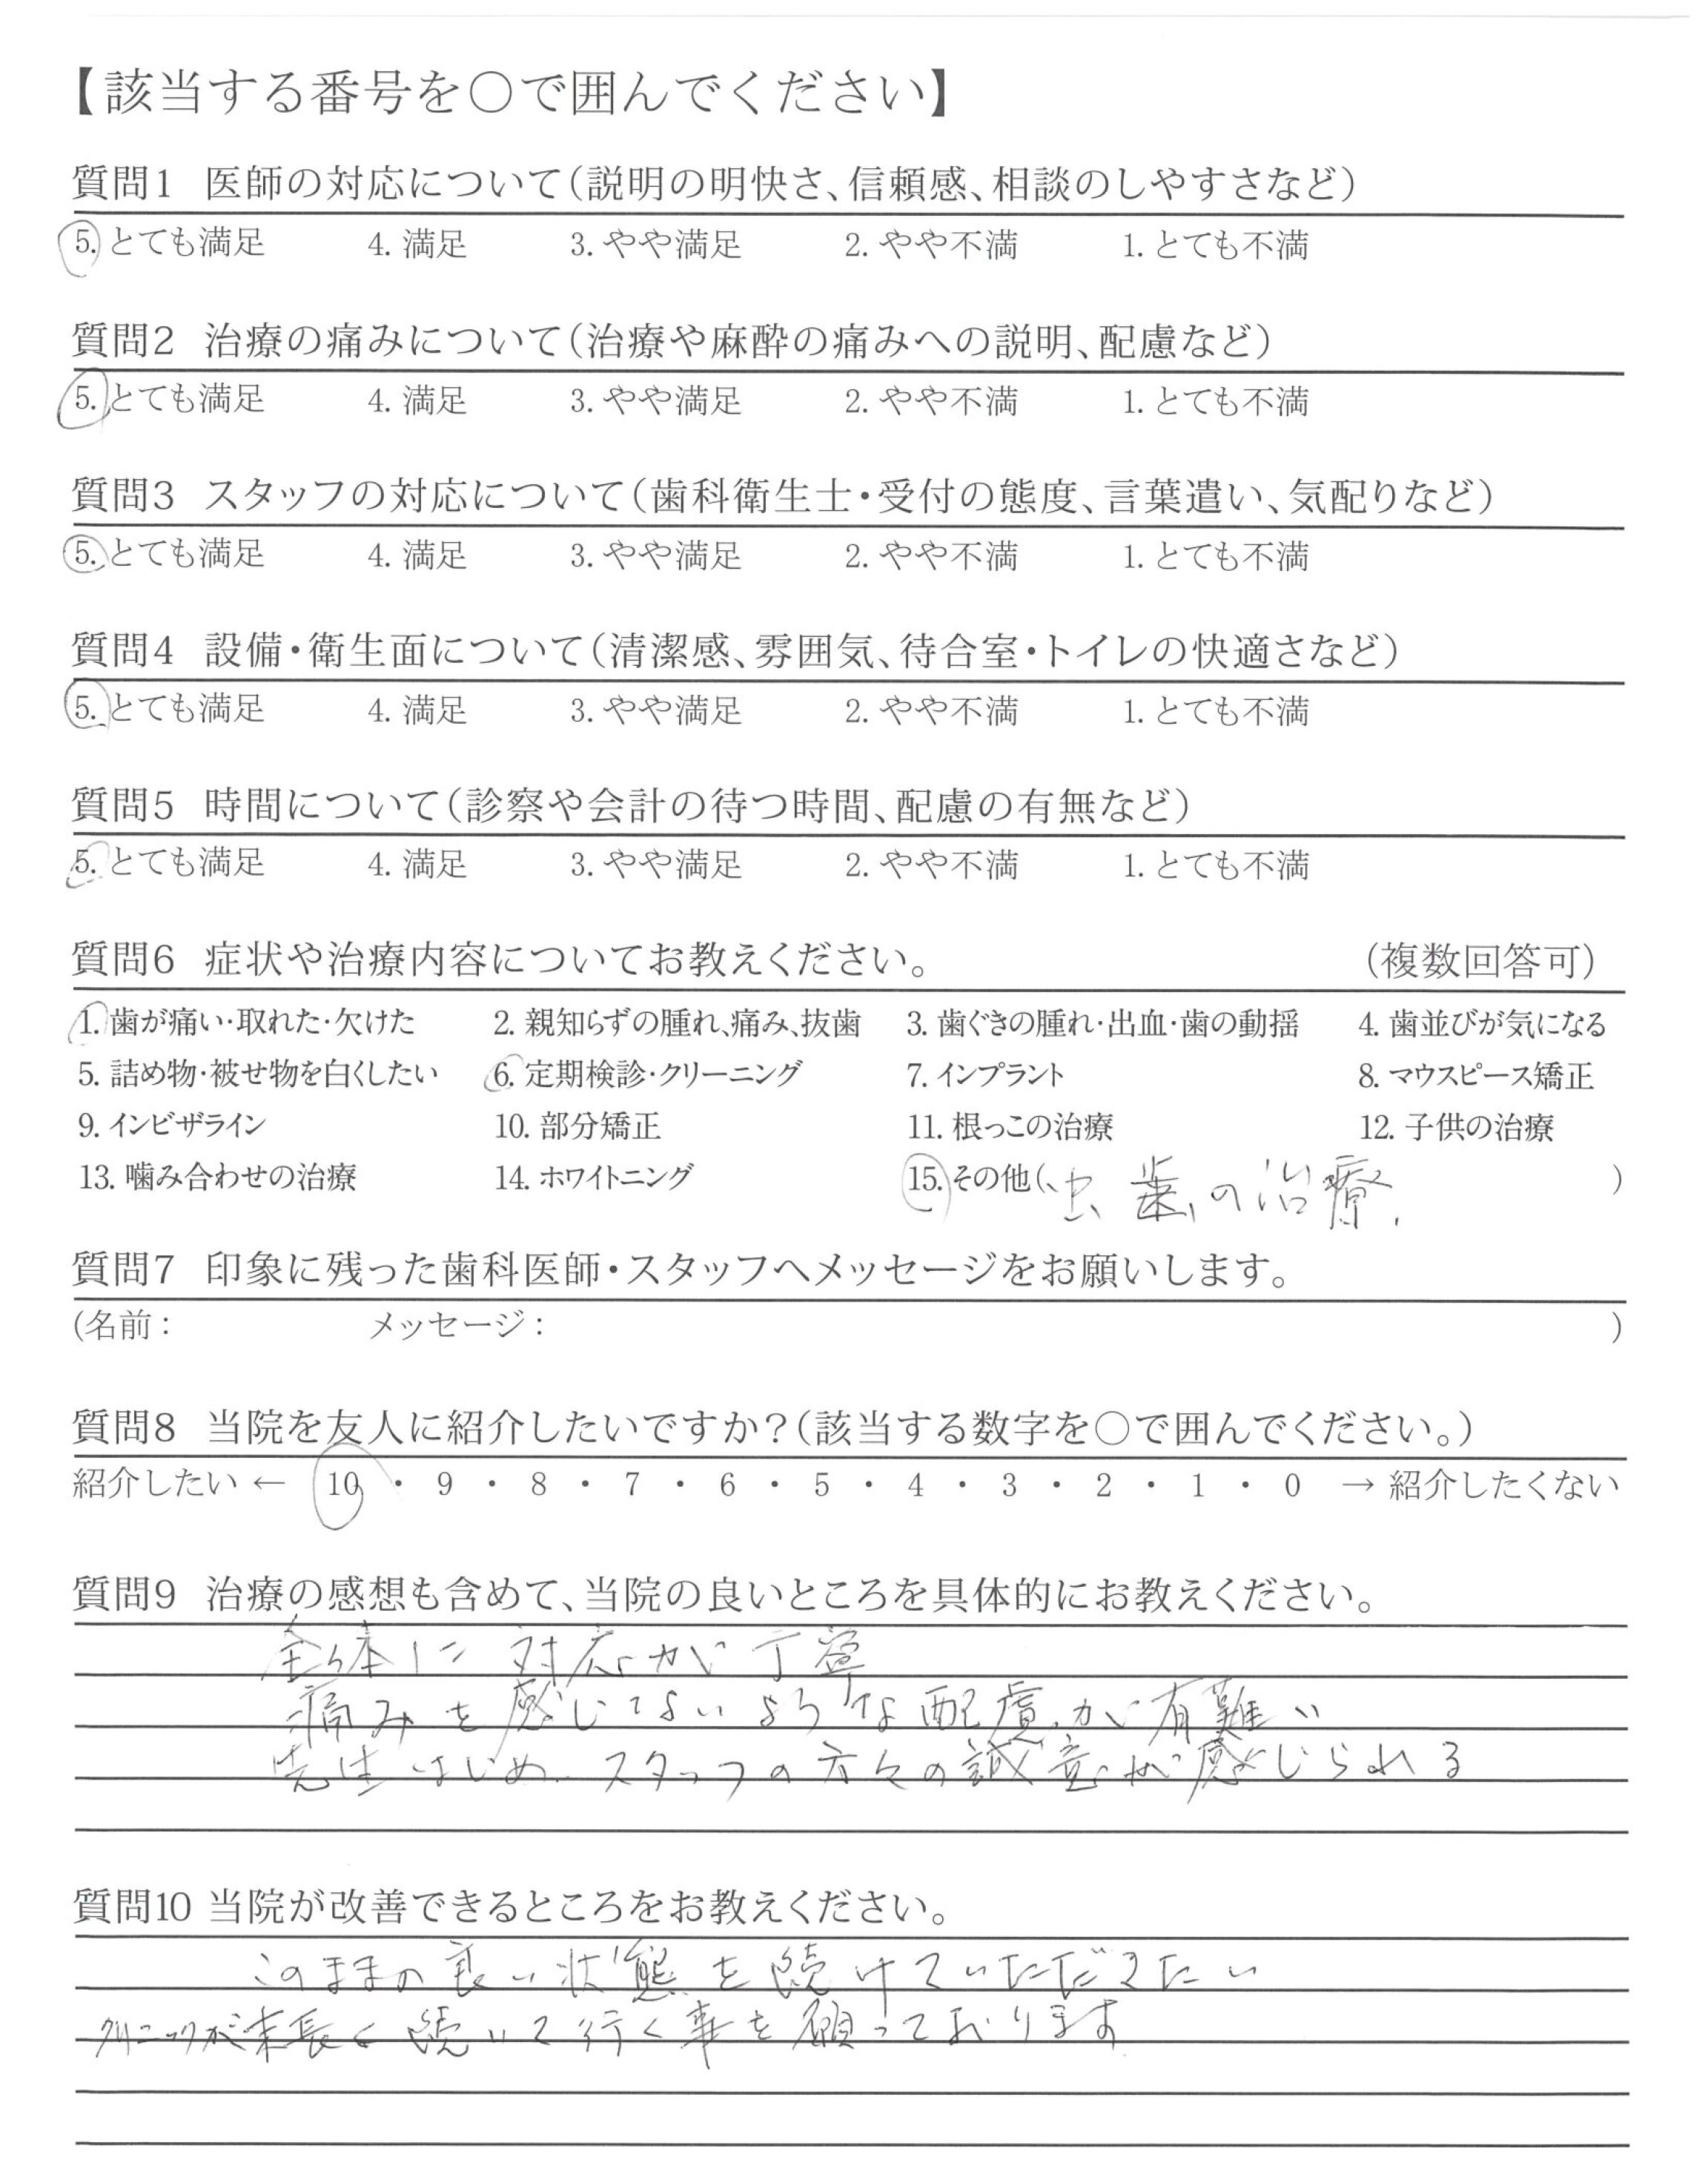 【該当する番号を〇で囲んでください】
質問1 医師の対応について(説明の明快さ、信頼感、相談のしやすさなど)
5. とても満足 4. 満足 3. やや満足 2. やや不満 1. とても不満
質問2 治療の痛みについて(治療や麻酔の痛みへの説明、配慮など)
5. とても満足 4. 満足 3. やや満足 2. やや不満 1. とても不満
質問3 スタッフの対応について(歯科衛生士・受付の態度、言葉遣い、気配りなど)
5. とても満足 4. 満足 3. やや満足 2. やや不満 1. とても不満
質問4 設備・衛生面について(清潔感、雰囲気、待合室・トイレの快適さなど)
5. とても満足 4. 満足 3. やや満足 2. やや不満 1. とても不満
質問5 時間について(診察や会計の待つ時間、配慮の有無など)
5. とても満足 4. 満足 3. やや満足 2. やや不満 1. とても不満
質問6 症状や治療内容についてお教えください。 (複数回答可)
1. 歯が痛い・取れた・欠けた 2. 親知らずの腫れ、痛み、抜歯 3. 歯ぐきの腫れ・出血・歯の動揺 4. 歯並びが気になる
5. 詰め物・被せ物を白くしたい 6. 定期検診・クリーニング 7. インプラント 8. マウスピース矯正
9. インビザライン 10. 部分矯正 11. 根っこの治療 12. 子供の治療
13. 噛み合わせの治療 14. ホワイトニング 15. その他(虫歯の治療 )
質問7 印象に残った歯科医師・スタッフへメッセージをお願いします。
(名前: メッセージ: )
質問8 当院を友人に紹介したいですか?(該当する数字を〇で囲んでください。)
紹介したい ← 10 ・ 9 ・ 8 ・ 7 ・ 6 ・ 5 ・ 4 ・ 3 ・ 2 ・ 1 ・ 0 → 紹介したくない
質問9 治療の感想も含めて、当院の良いところを具体的にお教えください。
全体に対応が丁寧
痛みを感じないような配慮が有難い
先生はじめ、スタッフの方々の誠意が感じられる
質問10 当院が改善できるところをお教えください。
このままの良い状態を続けていただきたい
クリニックが末長く続いて行く事を願っております